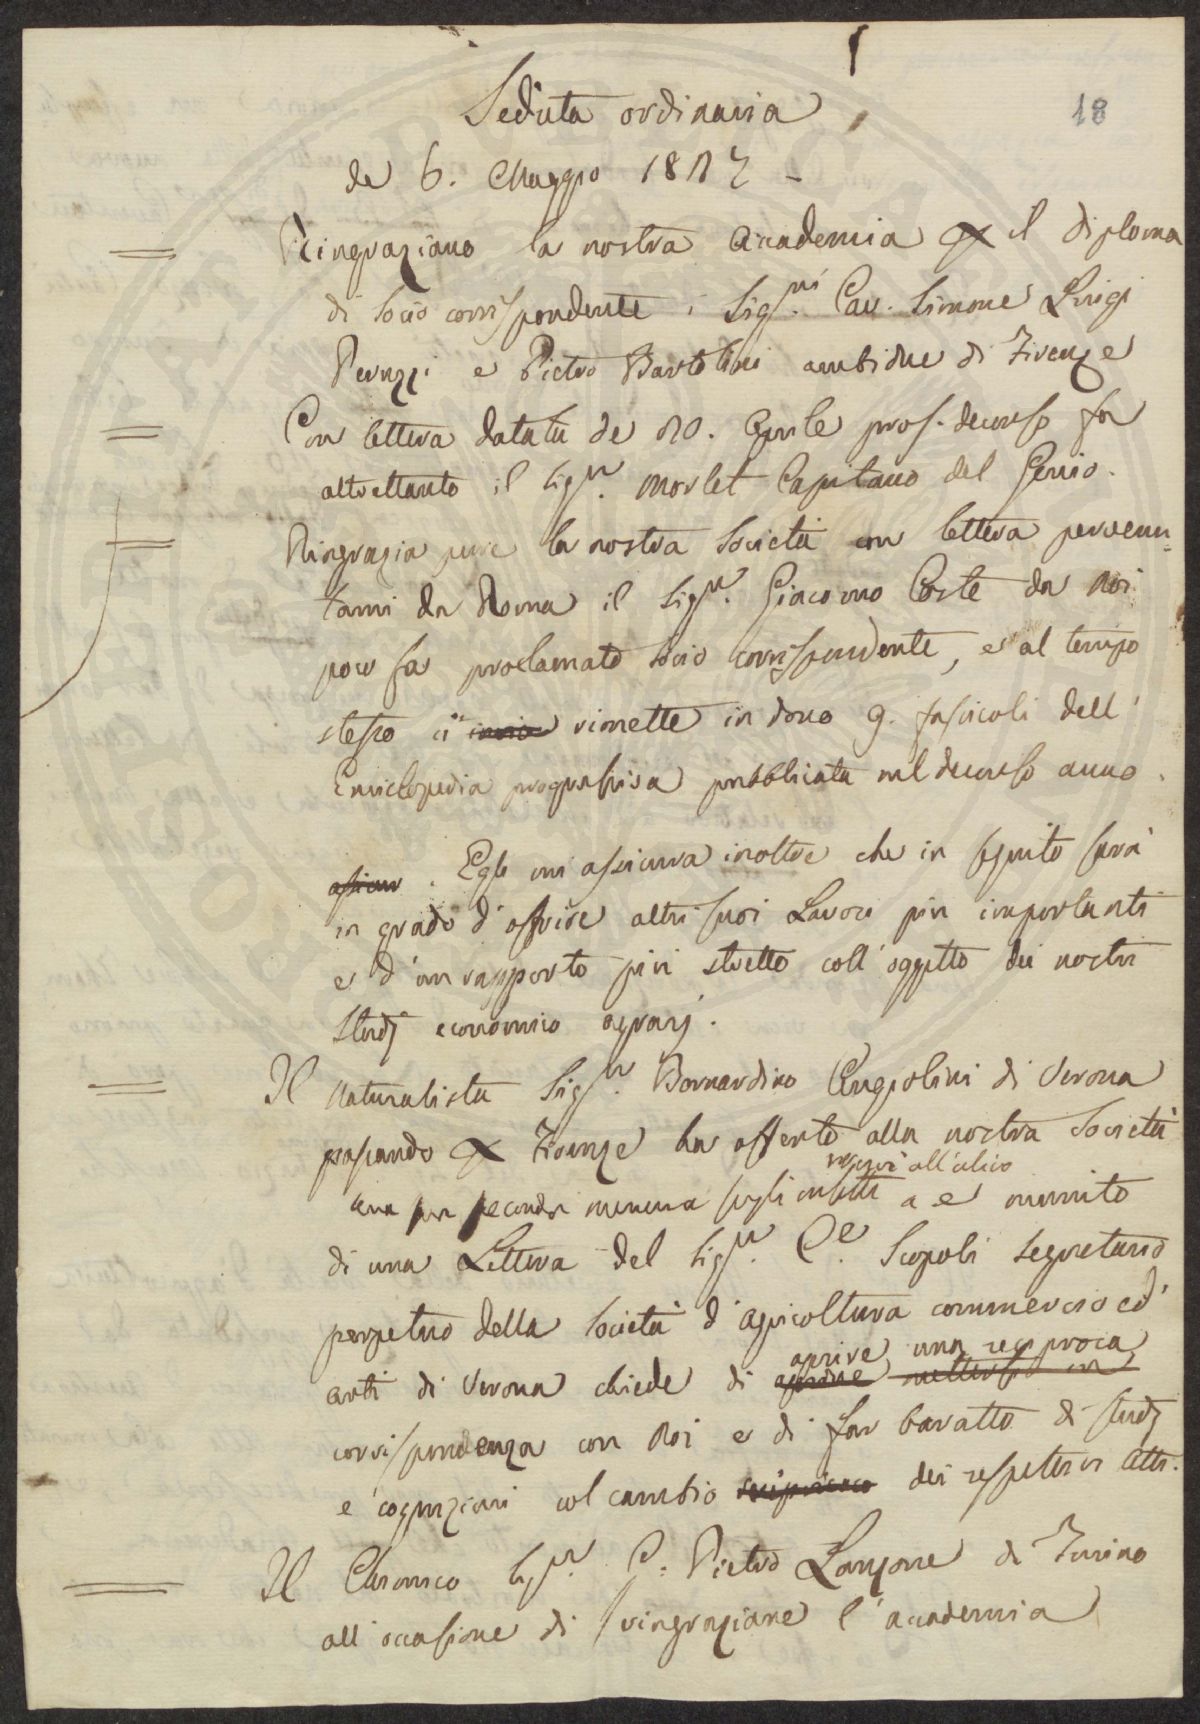 18
Seduta ordinaria
de 6. Maggio 1827
Ringraziano la nostra Accademia per il diploma
di Socio corrispondente i Sigri. Cav. Simone Luigi
Peruzzi e Pietro Bartolini ambidue di Firenze
Con lettera datata de 20. Aprile pros. decorso fa
altrettanto il Sigr. Morlet Capitano del Genio.
Ringrazia pure la nostra Società con lettera pervenu=
tami da Roma il Sigr. Giacomo Coste da Noi
poco fa proclamato Socio corrispondente, e al tempo
stesso ci invia rimette in dono 9. fascicoli dell'
Enciclopedia progressiva pubblicata nel decorso anno.
assicur. Egli mi assicura inoltre che in seguito sarà
in grado d'offrire altri suoi Lavori più importanti
e d'un rapporto più stretto coll'oggetto dei nostri
studj economico agrarj.
Il Naturalista Sigr. Bernardino Angiolini di Verona
passando per Firenze ha offerto alla nostra Società
una sua seconda memoria sugli insetti
nocivi all'ulivo
a e munito
di una Lettera del Sigr. Ce. Scopoli Segretario
perpetuo della Società d'agricoltura commercio ed
arti di Verona chiede di aprire mettersi in
aprire una reciproca
corrispondenza con Noi e di far baratto di studj
e cognizioni col cambio reciproco dei respettivi Atti.
Il Chimico Sigr. Pietro Lanzone di Torino
all'occasione di ringraziare l'accademia